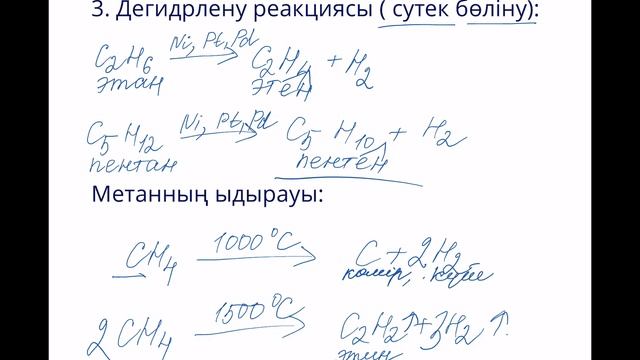 3. Дегидрлену реакциясы ( сутек бөліну):
C2H6 Ni, Pt, Pd C2H4 + H2
этан этен
C5H12 Ni, Pt, Pd C5H10 + H2
пентан пентен
Метанның ыдырауы:
CH4 1000°C C + 2H2
көмір, күйе
2CH4 1500°C C2H2↑ + 3H2↑
этин